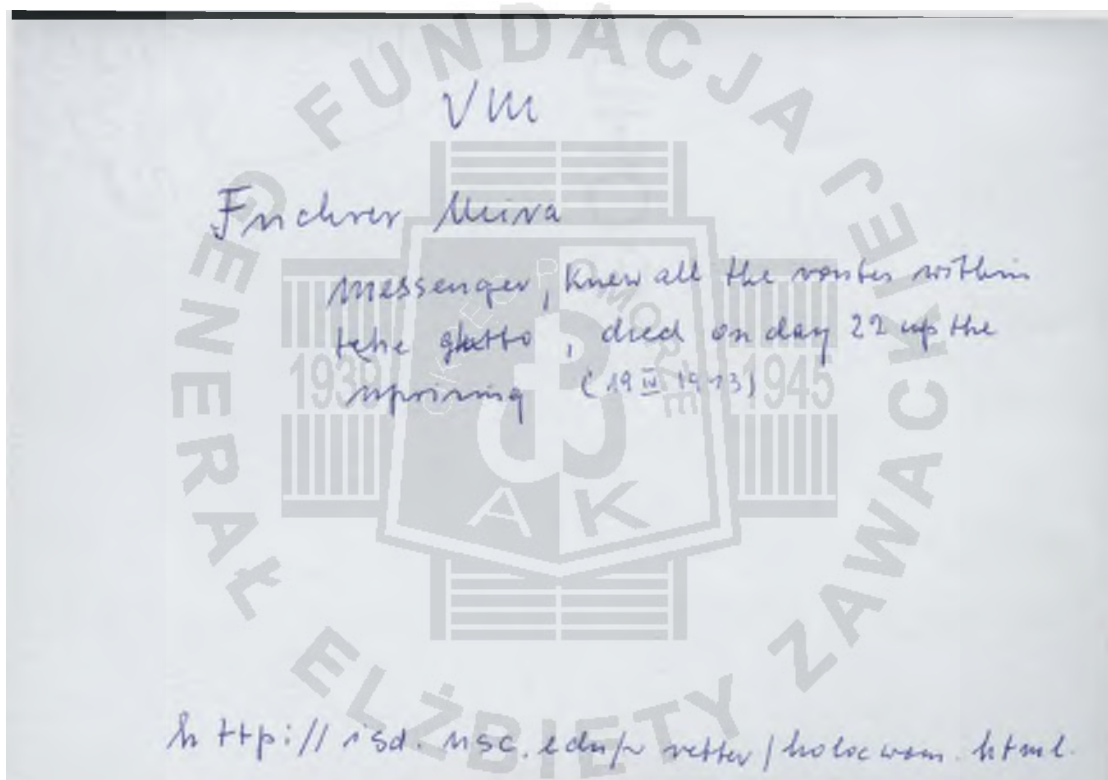 VIII
Fuchrer Mira
messenger, knew all the routes within
tehe ghetto, died on day 22 up the
uprising (19 IV 1943)
http://isd.usc.edu/~retter/holocwom.html.
FUNDACJA GENERAŁ ELŻBIETY ZAWACKIEJ
1939 1945
OKRĘG POMORZE
AK